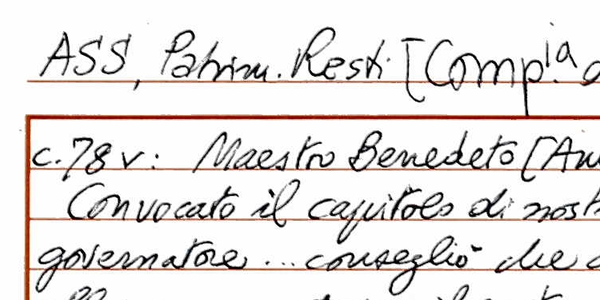 ASS, Patrim. Resti [Comp.ia
c.78v: Maestro Benedeto [An
Convocato il capitolo di nost
governatore ... consegliò che